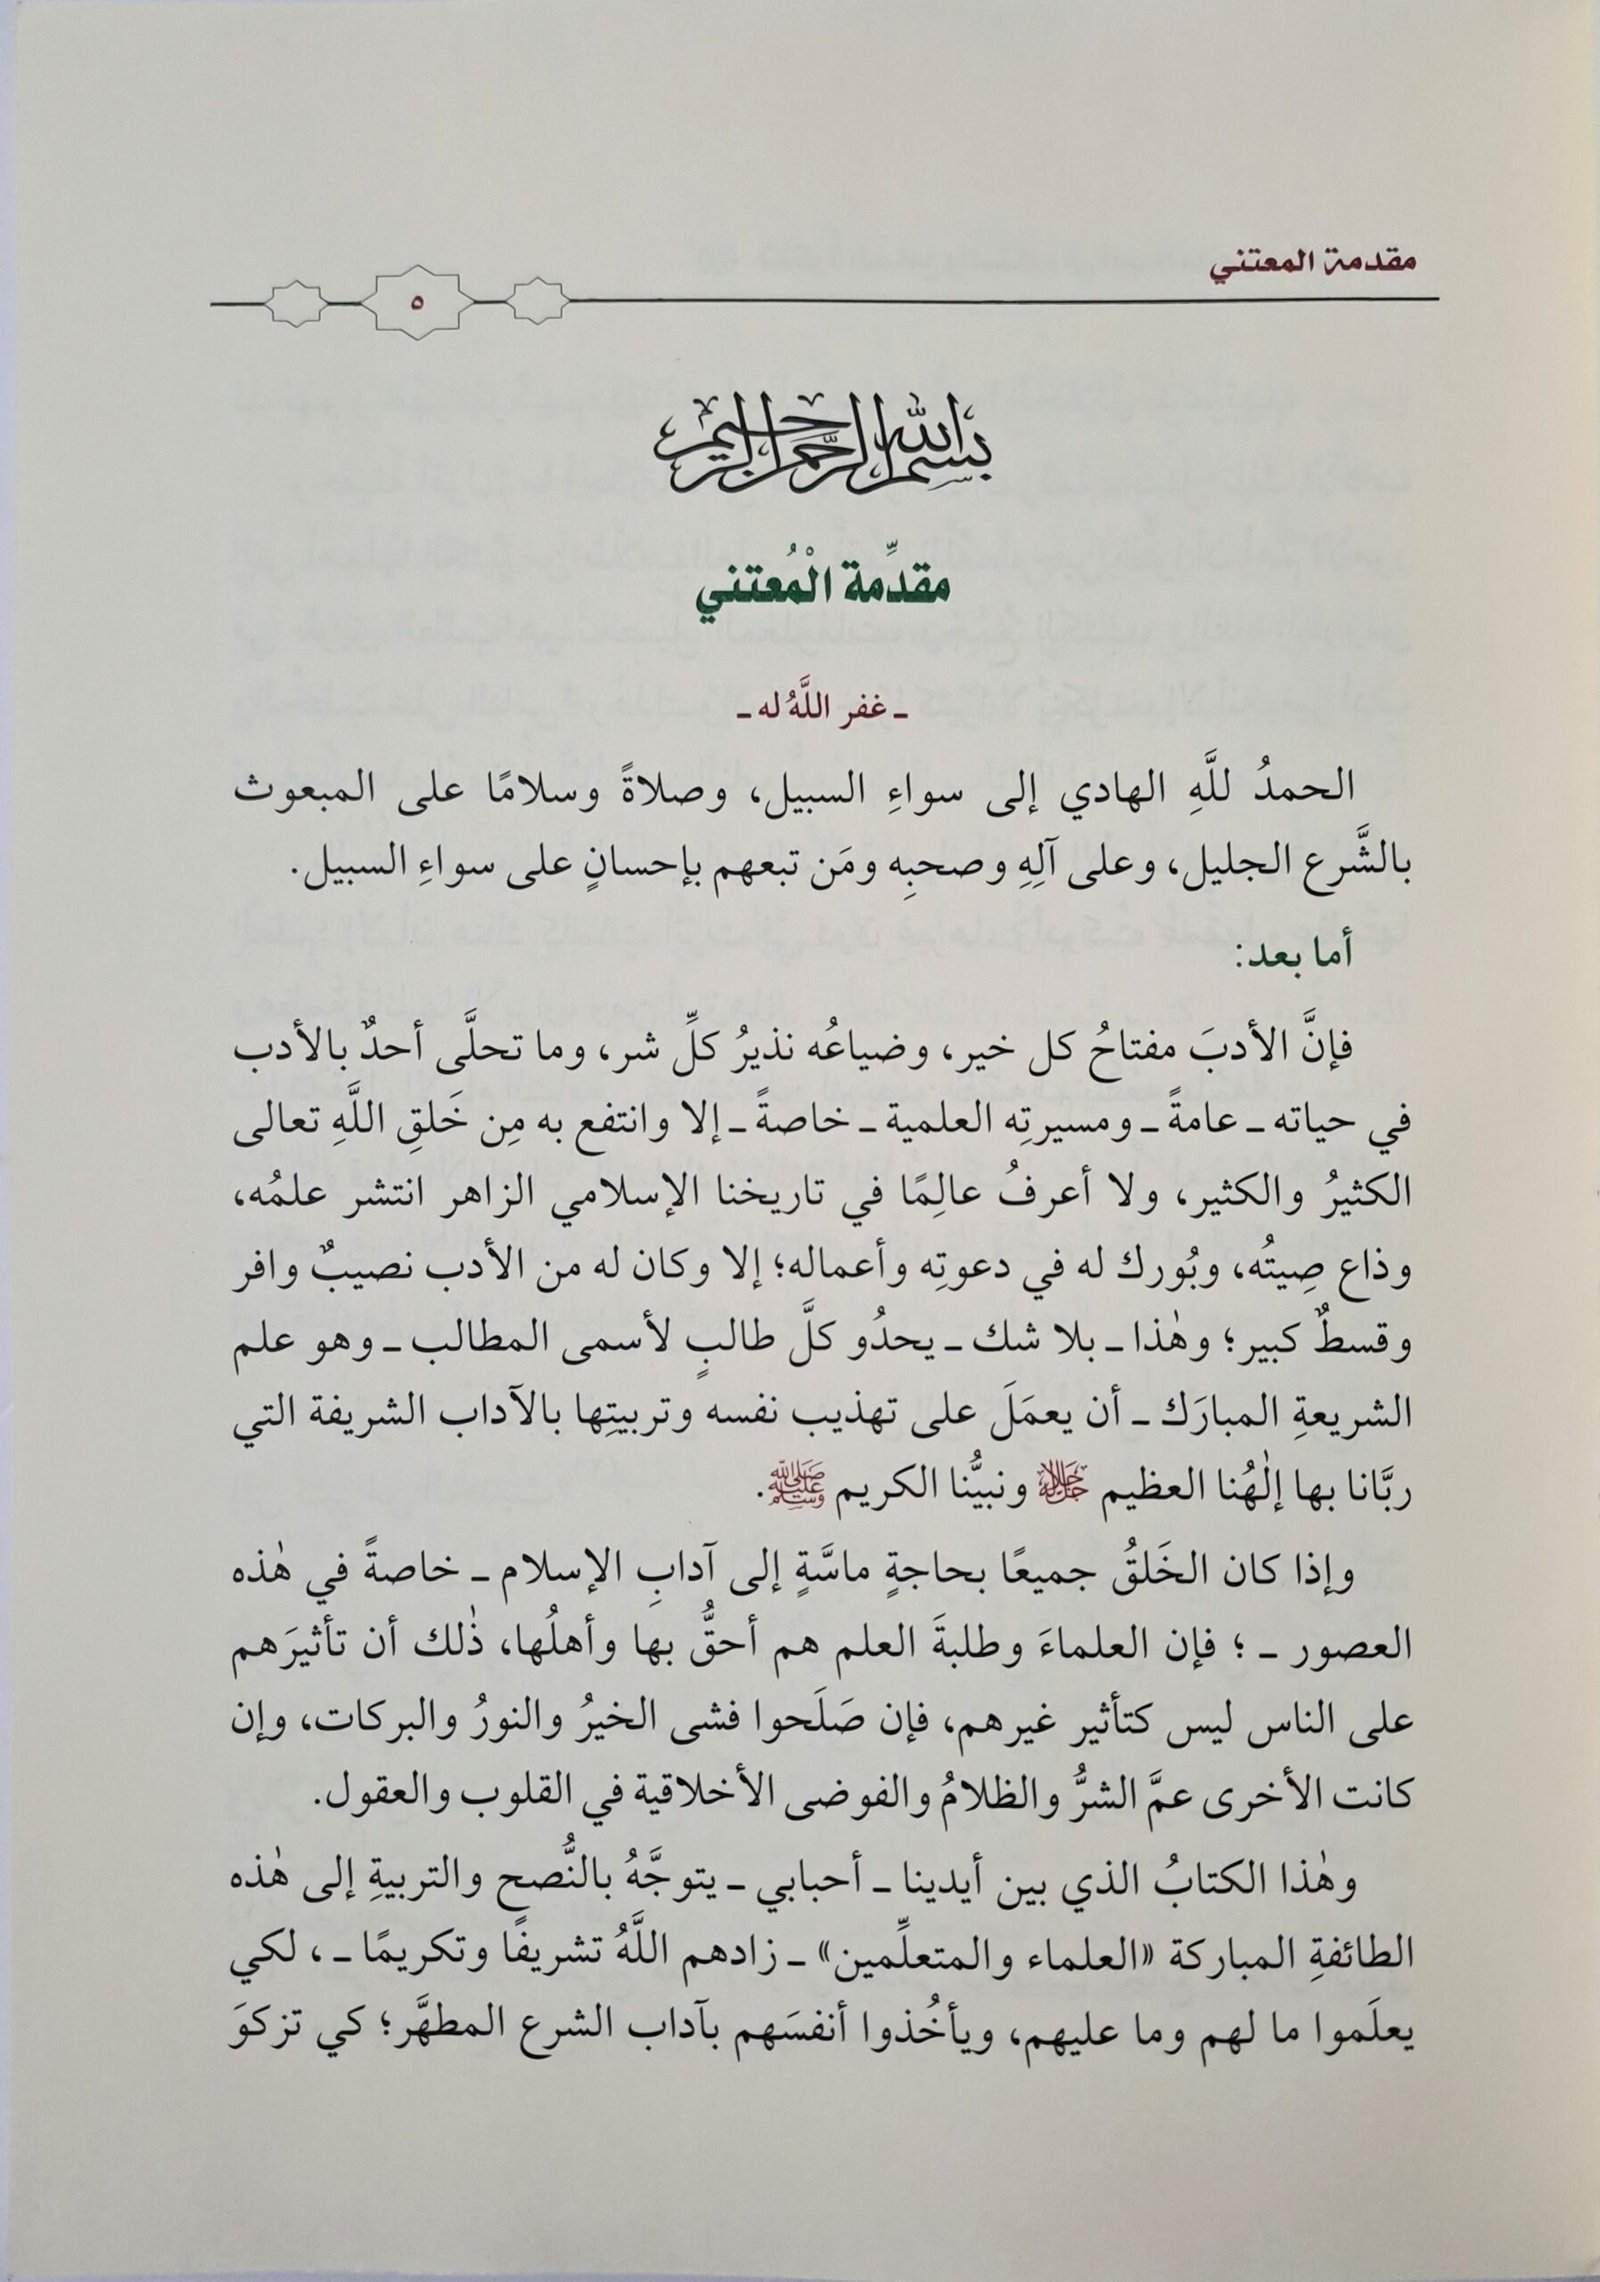 مقدمة المعتني
٥
بسم الله الرحمن الرحيم
مقدِّمة الْمُعتني
ـ غفر اللَّهُ له ـ
الحمدُ للَّهِ الهادي إلى سواءِ السبيل، وصلاةً وسلامًا على المبعوث
بالشَّرع الجليل، وعلى آلِهِ وصحبِه ومَن تبعهم بإحسانٍ على سواءِ السبيل.
أما بعد:
فإنَّ الأدبَ مفتاحُ كل خير، وضياعُه نذيرُ كلِّ شر، وما تحلَّى أحدٌ بالأدب
في حياته ـ عامةً ـ ومسيرتِه العلمية ـ خاصةً ـ إلا وانتفع به مِن خَلقِ اللَّهِ تعالى
الكثيرُ والكثير، ولا أعرفُ عالِمًا في تاريخنا الإسلامي الزاهر انتشر علمُه،
وذاع صِيتُه، وبُورك له في دعوتِه وأعماله؛ إلا وكان له من الأدب نصيبٌ وافر
وقسطٌ كبير؛ وهٰذا ـ بلا شك ـ يحدُو كلَّ طالبٍ لأسمى المطالب ـ وهو علم
الشريعةِ المبارَك ـ أن يعمَلَ على تهذيب نفسه وتربيتِها بالآداب الشريفة التي
ربَّانا بها إلٰهُنا العظيم ﷻ ونبيُّنا الكريم ﷺ.
وإذا كان الخَلقُ جميعًا بحاجةٍ ماسَّةٍ إلى آدابِ الإسلام ـ خاصةً في هٰذه
العصور ـ ؛ فإن العلماءَ وطلبةَ العلم هم أحقُّ بها وأهلُها، ذٰلك أن تأثيرَهم
على الناس ليس كتأثير غيرهم، فإن صَلَحوا فشى الخيرُ والنورُ والبركات، وإن
كانت الأخرى عمَّ الشرُّ والظلامُ والفوضى الأخلاقية في القلوب والعقول.
وهٰذا الكتابُ الذي بين أيدينا ـ أحبابي ـ يتوجَّهُ بالنُّصح والتربيةِ إلى هٰذه
الطائفةِ المباركة «العلماء والمتعلِّمين» ـ زادهم اللَّهُ تشريفًا وتكريمًا ـ ، لكي
يعلَموا ما لهم وما عليهم، ويأخُذوا أنفسَهم بآداب الشرع المطهَّر؛ كي تزكوَ